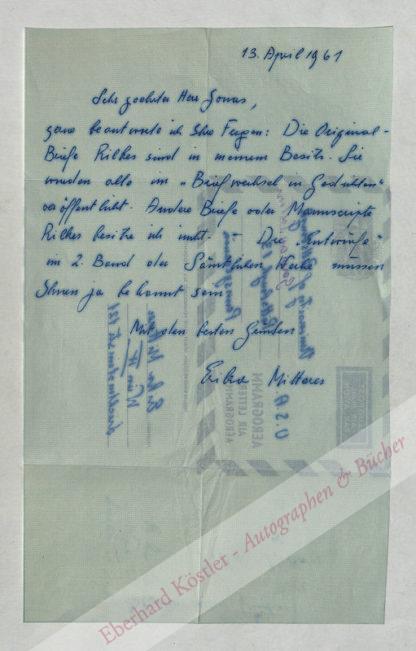 13. April 1961
Sehr geehrter Herr Jonas,
gerne beantworte ich Ihre Fragen: Die Original-
Briefe Rilkes sind in meinem Besitz. Sie
wurden alle im „Briefwechsel in Gedichten"
veröffentlicht. Andere Briefe oder Manuscripte
Rilkes besitze ich nicht. - Die „Entwürfe"
im 2. Band der Sämtlichen Werke müssen
Ihnen ja bekannt sein.
Mit den besten Grüßen
Erika Mitterer
AEROGRAMM
AIR LETTER
AEROGRAMME
USA
Eberhard Köstler - Autographen & Bücher